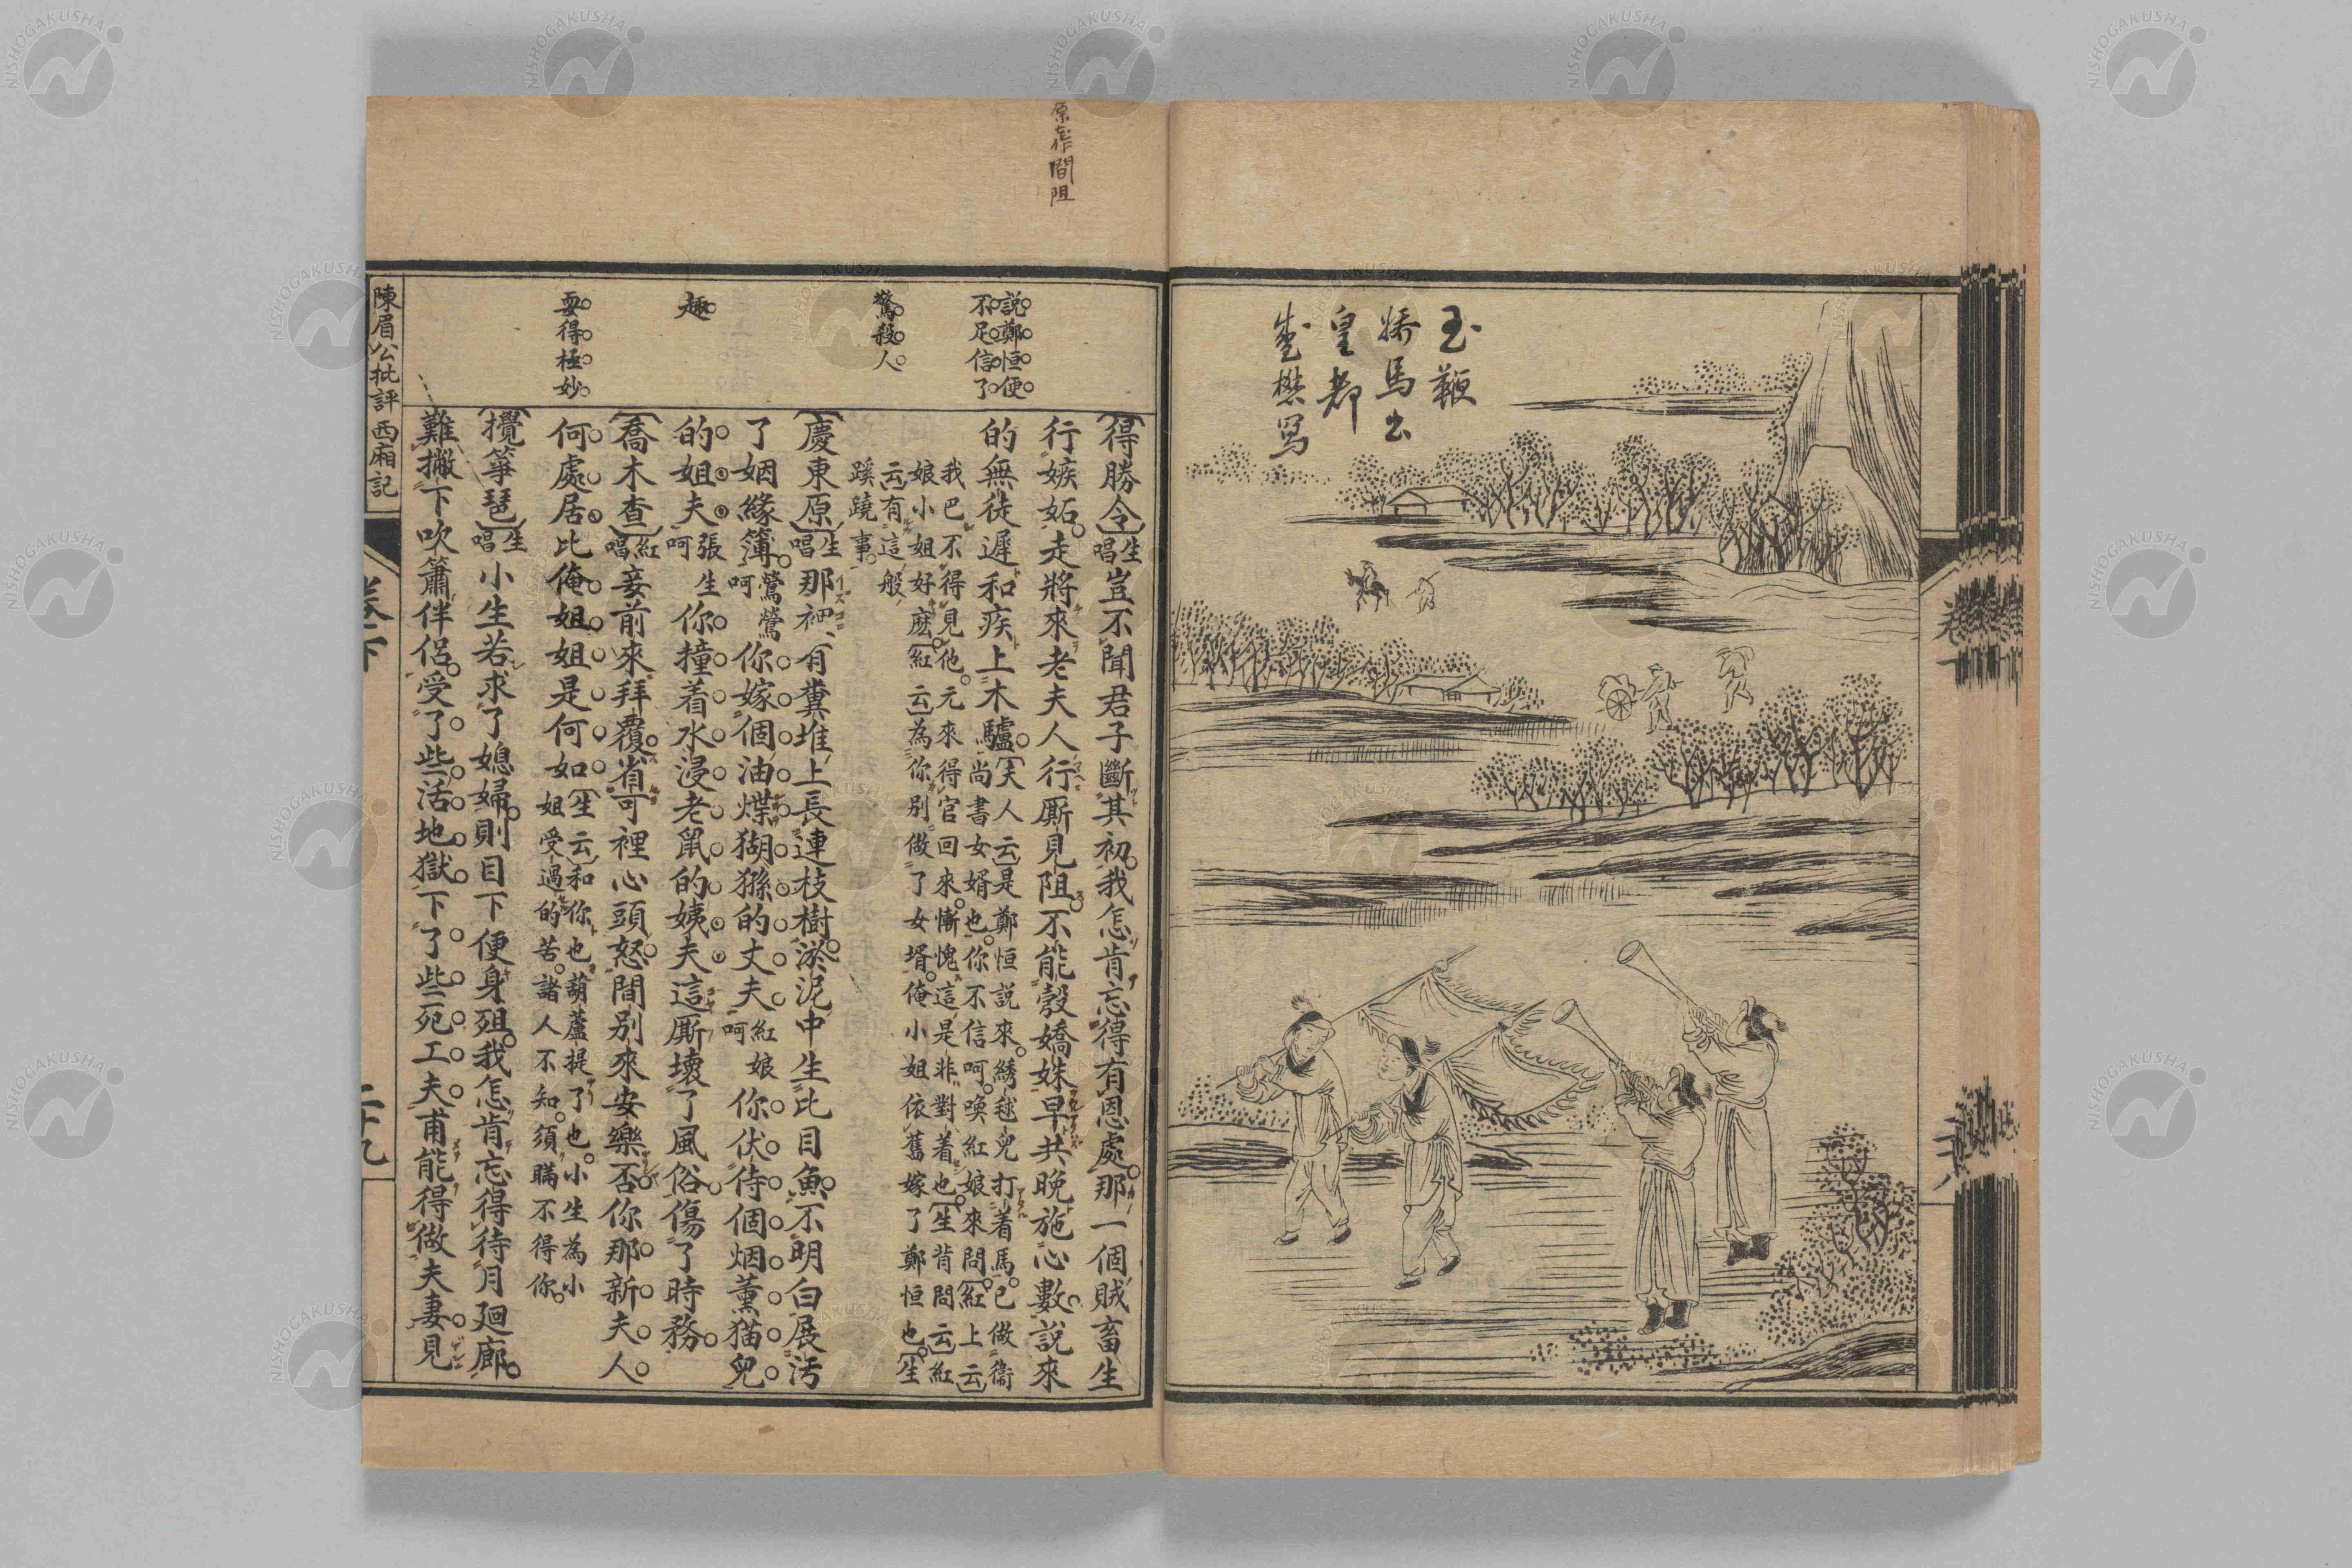 玉鞭
嬌馬出
皇都
盛懋寫
卷下
原作間阻
説鄭恒便
不足信了
驚殺人
趣
耍得極妙
【得勝令】生唱豈不聞君子斷其初。我怎肯忘得有恩處。那一個賊畜生
行嫉妬。走將來老夫人行厮見阻。不能彀嬌姝早共晚施心數。説來
的無徒遲和疾上木驢。〔夫人云〕是鄭恒説來。綉毬兒打着馬。已做衞
尚書女婿也。你不信呵。喚紅娘來問。〔紅上云〕
我巴不得見他。元來得官回來。慚愧這是非對着也。〔生背問云〕紅
娘小姐好麽。〔紅云〕為你別做了女壻。俺小姐依舊嫁了鄭恒也。〔生
云〕有這般
蹊蹺事。
【慶東原】生唱那裡有糞堆上長連枝樹。淤泥中生比目魚。不明白展汚
了姻緣簿。鶯鶯呵你嫁個油煠猢猻的丈夫。紅娘呵你伏侍個烟薰猫兒
的姐夫。張生呵你撞着水浸老鼠的姨夫。這厮壞了風俗。傷了時務。
【喬木查】紅唱妾前來拜覆。省可裡心頭怒。間別來安樂否。你那新夫人
何處居。比俺姐姐是何如。〔生云〕和你也葫蘆提了也。小生為小
姐受過的苦。諸人不知。須瞞不得你。
【攪箏琶】生唱小生若求了媳婦。則目下便身殂。我怎肯忘得待月廻廊。
難撇下吹簫伴侶。受了些活地獄。下了些死工夫。甫能得做夫妻。見
陳眉公批評西廂記
卷下
二十九